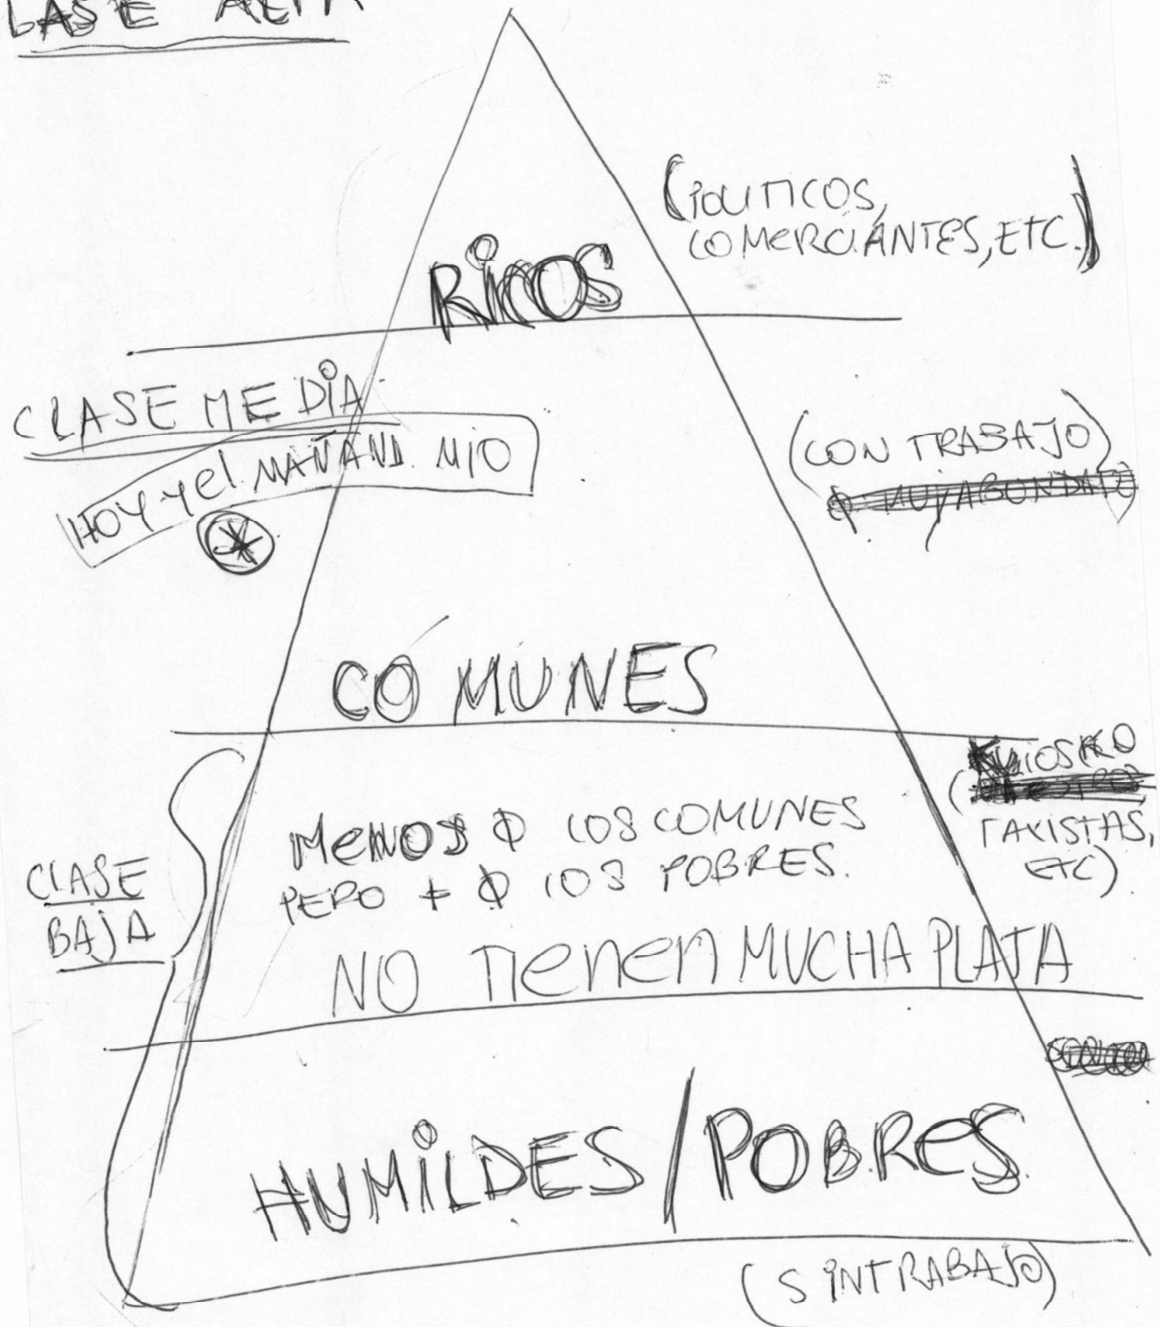 CLASE ALTA
(POLITICOS,
COMERCIANTES, ETC.)
RicOS
CLASE MEDiA
HOY Y el MAÑANA MIO
(CON TRABAJO)
COMUNES
KuiosKO
TAXISTAS,
ETC).
MeNOS Φ LOS COMUNES
PERO + Φ LOS POBRES.
CLASE
BAJA
NO TIenen MUCHA PLATA
HUMiLDES/POBReS
(SiNTRABAJO)